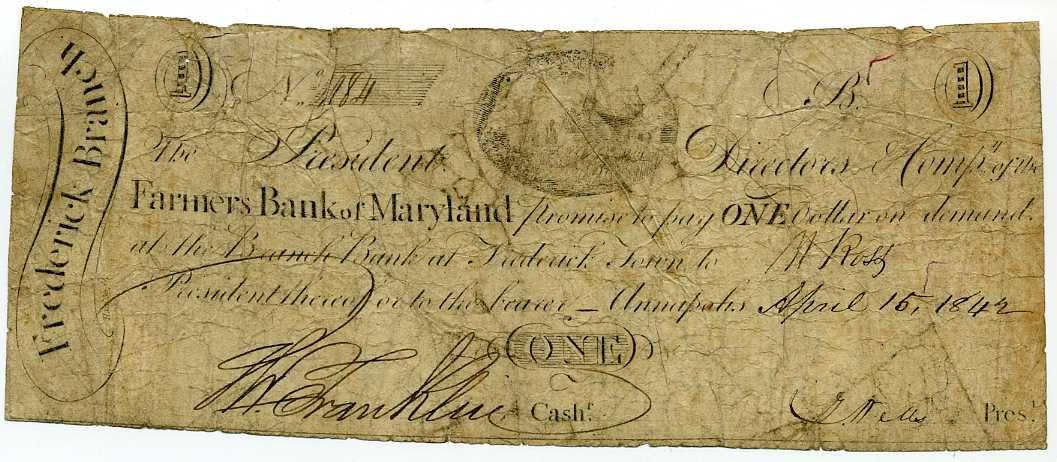 Frederick Branch
1 Nº 184 B 1
The President Directors & Compy. of the
Farmers Bank of Maryland promise to pay ONE Dollar on demand.
at the Branch Bank at Frederick Town to W Ross
President thereof or to the bearer – Annapolis April 15, 1842
ONE
Franklin Cashr. Wells Prest.